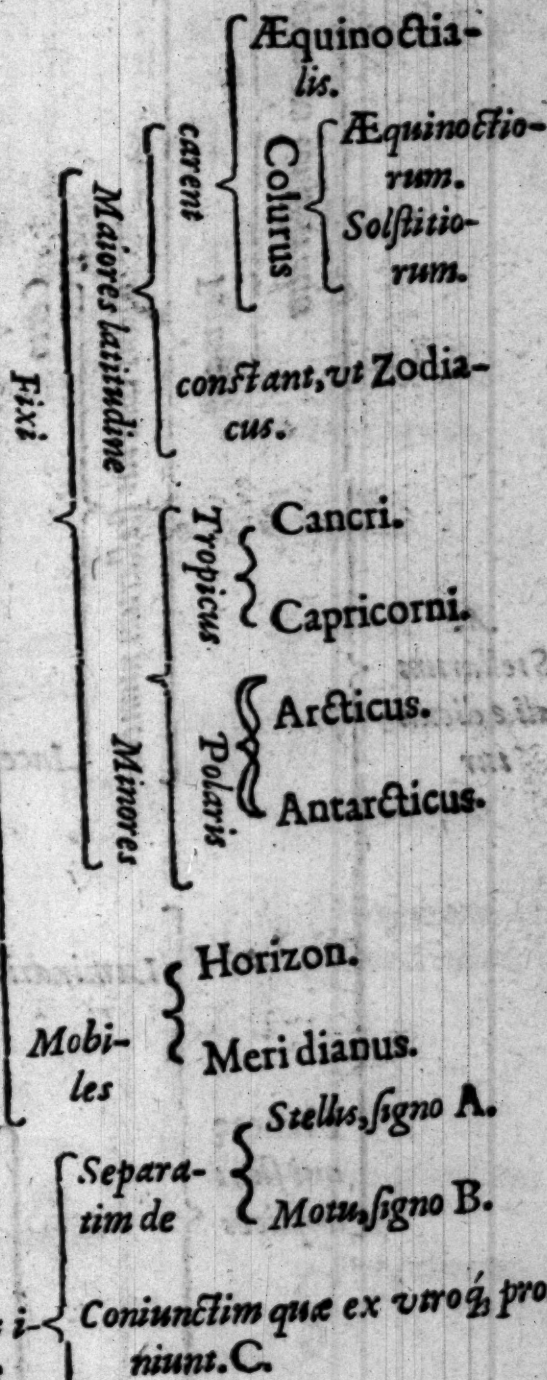 Fixi
Maiores latitudine
carent
Æquinoctia-
lis.
Colurus
Æquinoctio-
rum.
Solſtitio-
rum.
conſtant, vt Zodia-
cus.
Minores
Tropicus
Cancri.
Capricorni.
Polaris
Arcticus.
Antarcticus.
Mobi-
les
Horizon.
Meridianus.
Separa-
tim de
Stellis, ſigno A.
Motu, ſigno B.
i-
Coniunctim quæ ex vtroq́; pro
niunt. C.